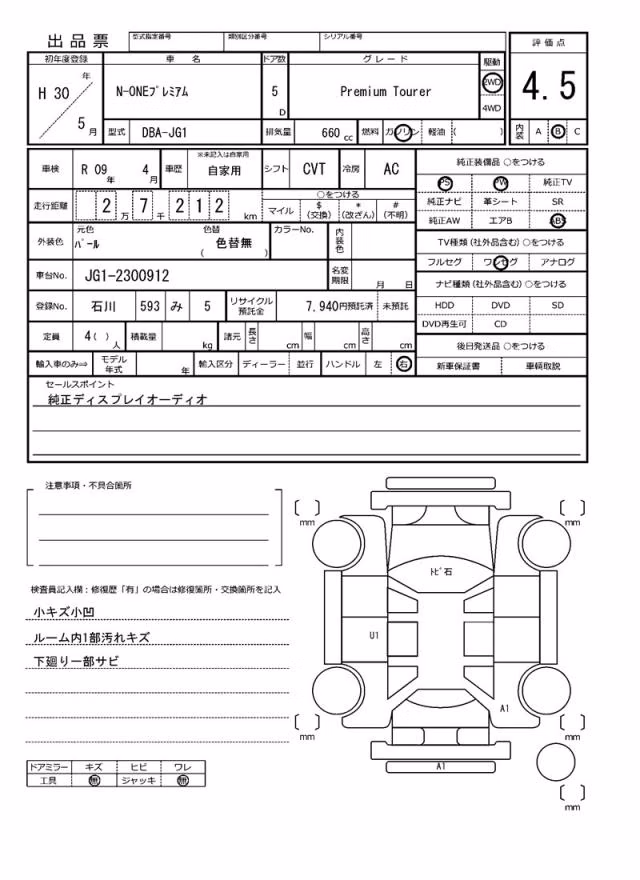 出品票 型式指定番号 類別区分番号 シリアル番号
評価点
初年度登録 車名 ドア数 グレード 駆動
H 30 年 5 月 N-ONEプレミアム 5 D Premium Tourer 2WD 4WD
4.5
型式 DBA-JG1 排気量 660 cc 燃料 ガソリン 軽油 ( ) 内装 A B C
車検 R 09 年 4 月 車歴 ※未記入は自家用 自家用 シフト CVT 冷房 AC
走行距離 2 万 7 千 2 1 2 km ○をつける マイル $ (交換) * (改ざん) # (不明)
外装色 元色 パール 色替 色替無 ( ) カラーNo. 内装色
車台No. JG1-2300912 名変期限 月 日
登録No. 石川 593 み 5 リサイクル預託金 7,940円預託済 未預託
定員 4( ) 人 積載量 kg 諸元 長さ cm 幅 cm 高さ cm
輸入車のみ⇒ モデル年式 年 輸入区分 ディーラー 並行 ハンドル 左 右
純正装備品 ○をつける
PS PW 純正TV
純正ナビ 革シート SR
純正AW エアB ABS
TV種類 (社外品含む) ○をつける
フルセグ ワンセグ アナログ
ナビ種類 (社外品含む) ○をつける
HDD DVD SD
DVD再生可 CD
後日発送品 ○をつける
新車保証書 車輌取説
セールスポイント
純正ディスプレイオーディオ
注意事項・不具合箇所
検査員記入欄：修復歴「有」の場合は修復箇所・交換箇所を記入
小キズ小凹
ルーム内1部汚れキズ
下廻り一部サビ
ドアミラー キズ ヒビ ワレ
工具 無 ジャッキ 無
mm
mm
トビ石
U1
A1
mm
mm
A1
mm